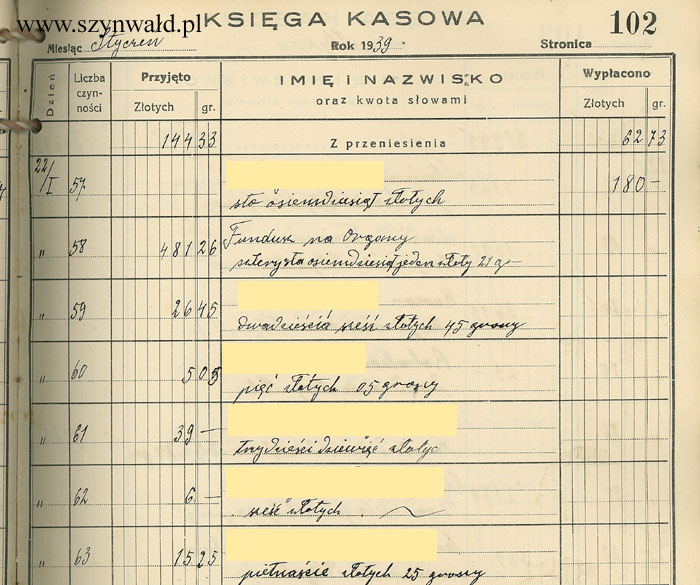 www.szynwałd.pl
KSIĘGA KASOWA
102
Miesiąc Styczeń Rok 1939 Stronica
Dzień Liczba czyn- ności Przyjęto IMIĘ I NAZWISKO Wypłacono
Złotych gr. oraz kwota słowami Złotych gr.
144 33 Z przeniesienia 62 73
22/I 57 180 -
sto osiemdziesiąt złotych
" 58 481 26 Fundusz na Organy
szterysta osiemdziesiąt jeden złoty 21 gr
" 59 26 45
dwadzieścia sześć złotych 45 groszy
" 60 5 05
pięć złotych 05 groszy
" 61 39 -
trzydzieści dziewięć złotyc
" 62 6 -
sześć złotych
" 63 15 25
piętnaście złotych 25 groszy